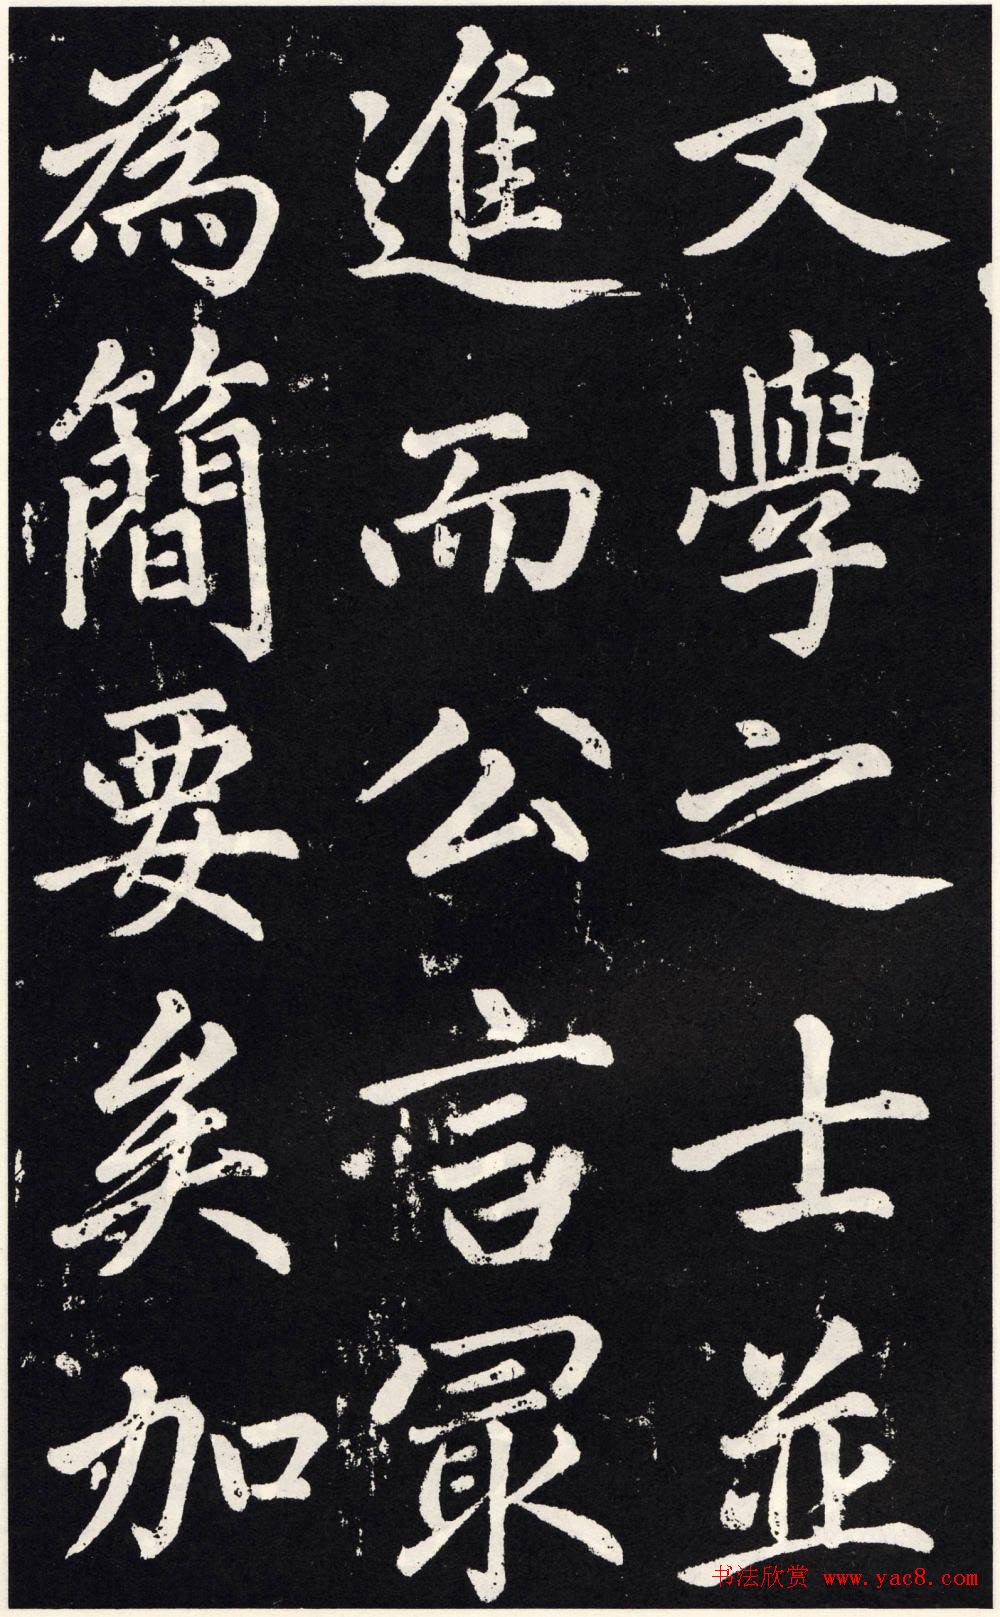 文學之士並
進而公言冣
為簡要矣加
书法欣赏 www.yac8.com